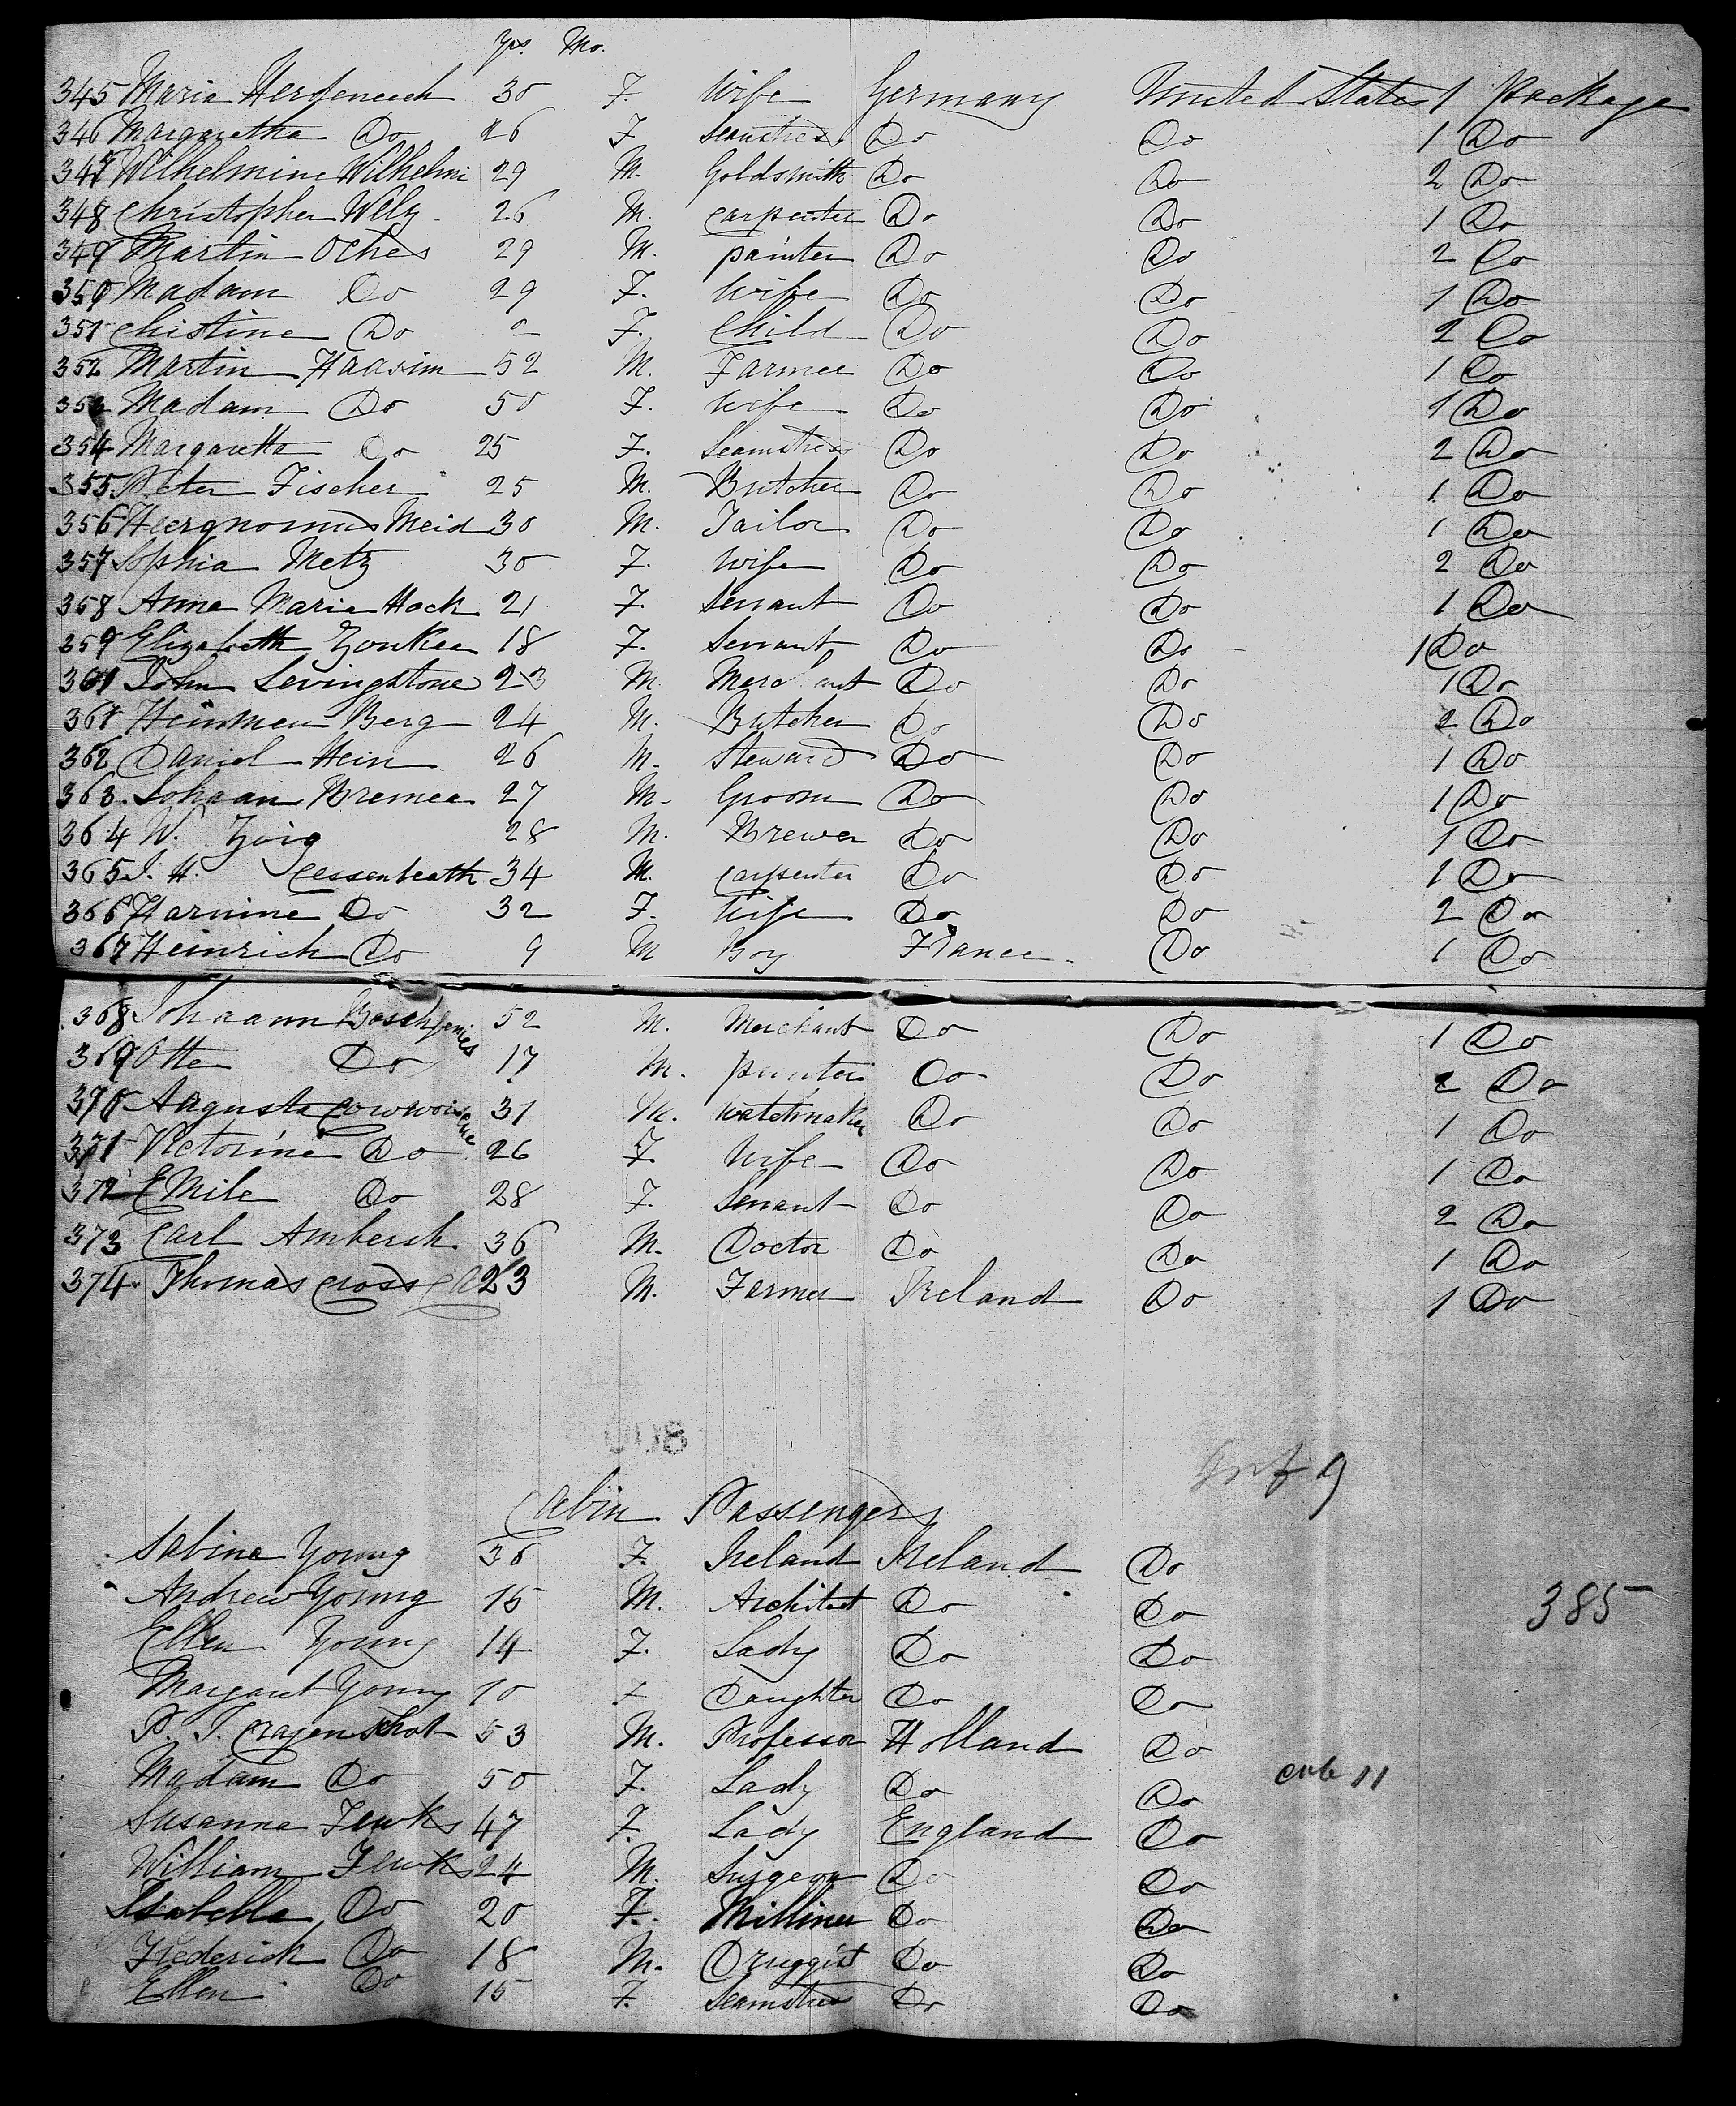 Yrs. Mo.
345 Maria Herdenech 30 F. Wife Germany United States 1 Package
346 Margaretha Do 26 F Seamstress Do Do 1 Do
347 Wilhelmine Wilhelmi 29 M. Goldsmith Do Do 2 Do
348 Christopher Welz 26 M. carpenter Do Do 1 Do
349 Martin Oches 29 M. painter Do Do 2 Do
350 Madam Do 29 F. Wife Do Do 1 Do
351 Chistine Do 2 F. Child Do Do 2 Do
352 Martin Haasim 52 M. Farmer Do Do 1 Do
353 Madam Do 50 F. Wife Do Do 1 Do
354 Margaretta Do 25 F. Seamstress Do Do 2 Do
355 Peter Fischer 25 M. Butcher Do Do 1 Do
356 Heergnomus Meid 30 M. Tailor Do Do 1 Do
357 Sophia Metz 30 F. Wife Do Do 2 Do
358 Anna Maria Hock 21 F. Servant Do Do 1 Do
359 Elizabeth Zonker 18 F. Servant Do Do 1 Do
361 John Levingstone 23 M Merchant Do Do 1 Do
361 Heinmen Berg 24 M. Butcher Do Do 2 Do
362 Daniel Hein 26 M. Steward Do Do 1 Do
363. Johaan Bremer 27 M. Groom Do Do 1 Do
364 W. Zorg 28 M. Brewer Do Do 1 Do
365 J. H. Cessenbeath 34 M. carpenter Do Do 1 Do
366 Harnine Do 32 F. Wife Do Do 2 Do
367 Heinrich Do 9 M Boy France. Do 1 Do
368 Johaann Boschjenies 52 M. Merchant Do Do 1 Do
369 Otte Do 17 M. painter Do Do 2 Do
370 Augusta 31 M. Watchmaker Do Do 1 Do
371 Victorine Do 26 F Wife Do Do 1 Do
372 EMile Do 28 F. Servant Do Do 2 Do
373 Carl Ambersh 36 M. Doctor Do Do 1 Do
374. Thomas Cross 23 M. Farmer Ireland Do 1 Do
008
9
Cabin Passengers
Sabine Young 36 F. Ireland Ireland Do
Andrew Young 16 M. Architect Do Do 385
Ellen Young 14 F. Lady Do Do
Margaret Young 10 F Daughter Do Do
P. J. Crajenschot 53 M. Professor Holland Do
Madam Do 50 F. Lady Do Do 11
Susanna Fewks 47 F. Lady England Do
William Fewks 24 M. Surgeon Do Do
Isabella Do 20 F. Milliner Do Do
Frederick Do 18 M. Druggist Do Do
Ellen Do 15 F. Seamstress Do Do